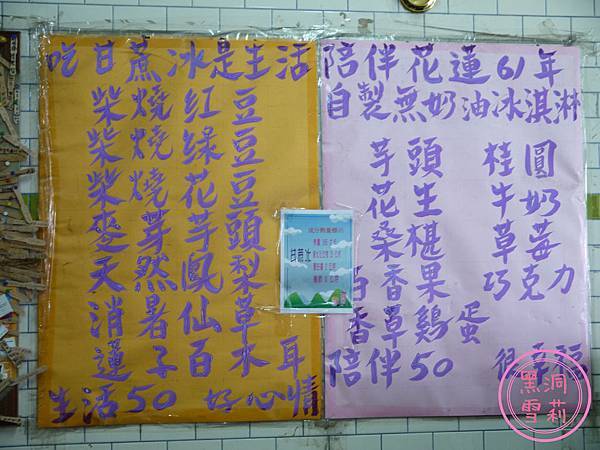 吃甘蔗冰是生活
柴燒紅豆
柴燒綠豆
柴燒花豆
麥芽芋頭
天然鳳梨
消暑仙草
蓮子百木耳
生活50 好心情
陪伴花蓮61年
自製無奶油冰淇淋
芋頭 桂圓
花生 牛奶
桑椹 草莓
百香果 巧克力
香草雞蛋
陪伴50 很幸福
甘蔗冰
黑洞
雪莉